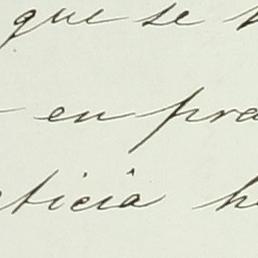 que se
en pra
eticiâ h